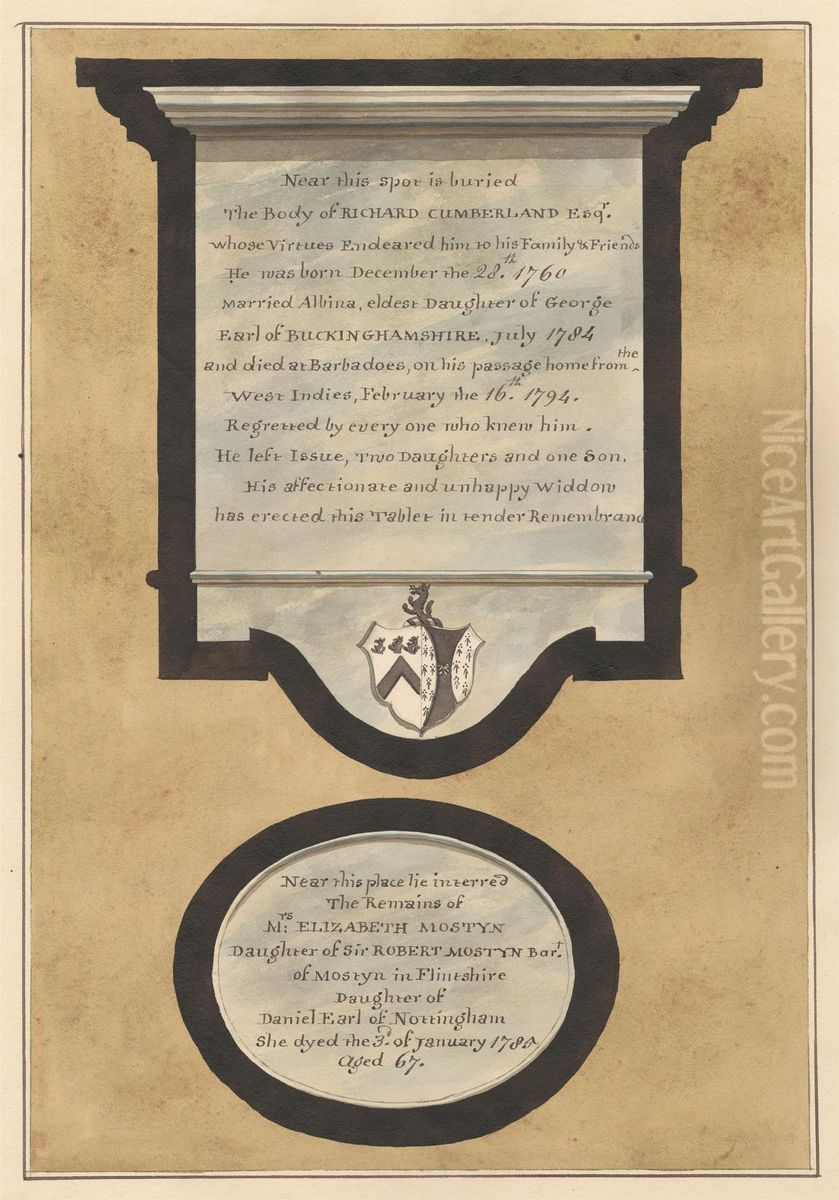 Near this spot is buried
The Body of RICHARD CUMBERLAND Esqr.
whose Virtues Endeared him to his Family & Friends
He was born December the 28.th 1760
Married Albina, eldest Daughter of George
Earl of BUCKINGHAMSHIRE, July 1784
and died at Barbadoes, on his passage home from the
West Indies, February the 16.th 1794.
Regretted by every one who knew him.
He left Issue, Two Daughters and one Son.
His affectionate and unhappy Widdow
has erected this Tablet in tender Remembranc
Near this place lie interred
The Remains of
Mrs: ELIZABETH MOSTYN
Daughter of Sir ROBERT MOSTYN Bart.
of Mostyn in Flintshire
Daughter of
Daniel Earl of Nottingham
She dyed the 3.d of January 1785
Aged 67.
NiceArtGallery.com